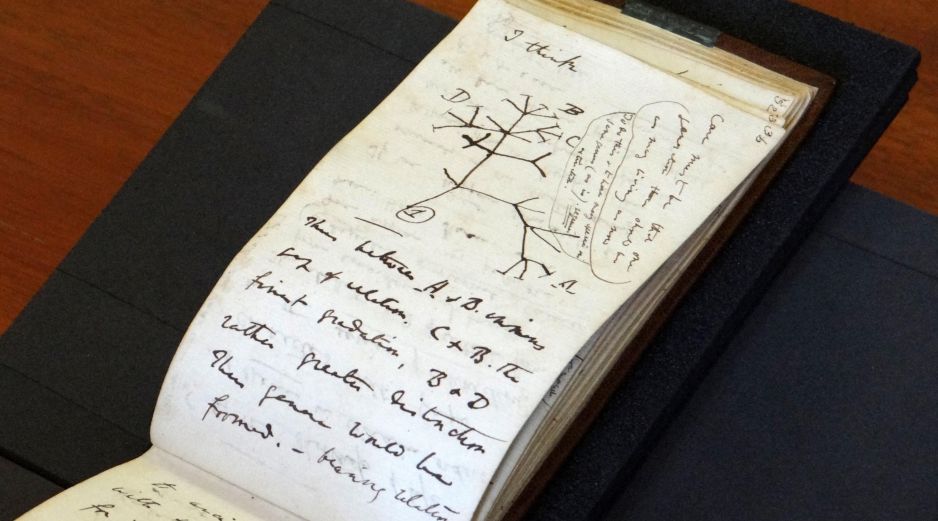 I think
D
B
C
A
1
36
Case must be that one
generation then should be
as many living as now
To do this & to have many species in
same genus (as is) requires
extinction.
Thus between A & B. immense
gap of relation. C & B. the
finest gradation, B & D
rather greater distinction
Thus genera would be
formed. — bearing relation
to
with